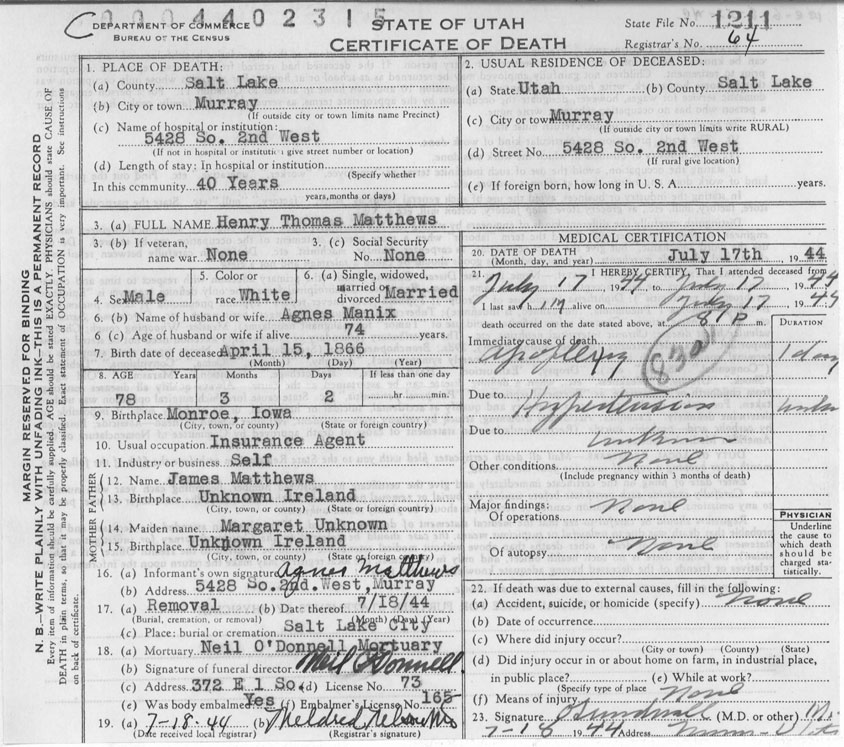 C 0004402315
DEPARTMENT OF COMMERCE
BUREAU OF THE CENSUS
STATE OF UTAH
CERTIFICATE OF DEATH
State File No. 1211
Registrar's No. 64
MARGIN RESERVED FOR BINDING
N. B.—WRITE PLAINLY WITH UNFADING INK—THIS IS A PERMANENT RECORD
Every item of information should be carefully supplied. AGE should be stated EXACTLY. PHYSICIANS should state CAUSE OF
DEATH in plain terms, so that it may be properly classified. Exact statement of OCCUPATION is very important. See instructions
1. PLACE OF DEATH:
(a) County Salt Lake
(b) City or town Murray
(If outside city or town limits name Precinct)
(c) Name of hospital or institution:
5428 So. 2nd West
(If not in hospital or institution give street number or location)
(d) Length of stay: In hospital or institution
(Specify whether
In this community 40 Years
years, months or days)
2. USUAL RESIDENCE OF DECEASED:
(a) State Utah (b) County Salt Lake
(c) City or town Murray
(If outside city or town limits write RURAL)
(d) Street No. 5428 So. 2nd West
(If rural give location)
(e) If foreign born, how long in U. S. A. years.
3. (a) FULL NAME Henry Thomas Matthews
3. (b) If veteran, name war None
3. (c) Social Security No. None
4. Sex Male
5. Color or race White
6. (a) Single, widowed, married or divorced Married
6. (b) Name of husband or wife Agnes Manix
6. (c) Age of husband or wife if alive 74 years.
7. Birth date of deceased April 15, 1866
(Month) (Day) (Year)
8. AGE Years Months Days If less than one day
78 3 2 hr. min.
9. Birthplace Monroe, Iowa
(City, town, or county) (State or foreign country)
10. Usual occupation Insurance Agent
11. Industry or business Self
FATHER
12. Name James Matthews
13. Birthplace Unknown Ireland
(City, town, or county) (State or foreign country)
MOTHER
14. Maiden name Margaret Unknown
15. Birthplace Unknown Ireland
(City, town, or county) (State or foreign country)
16. (a) Informant's own signature Agnes Matthews
(b) Address 5428 So. 2nd. West, Murray
17. (a) Removal (b) Date thereof 7/18/44
(Burial, cremation, or removal) (Month) (Day) (Year)
(c) Place: burial or cremation Salt Lake City
18. (a) Mortuary Neil O'Donnell Mortuary
(b) Signature of funeral director Neil O'Donnell
(c) Address 372 E 1 So. (d) License No. 73
(e) Was body embalmed Yes (f) Embalmer's License No. 165
19. (a) 7-18-44 (b) Mildred
(Date received local registrar) (Registrar's signature)
MEDICAL CERTIFICATION
20. DATE OF DEATH July 17th 1944
(Month, day, and year)
21. I HEREBY CERTIFY, That I attended deceased from
July 17, 1944 to July 17 1944
I last saw him alive on July 17 1944
death occurred on the date stated above, at 8 P m.
DURATION
Immediate cause of death
Apoplexy 1 day
83a
Due to Hypertension
Due to unknown
Other conditions None
(Include pregnancy within 3 months of death)
Major findings:
Of operations None
Of autopsy None
PHYSICIAN
Underline
the cause to
which death
should be
charged sta-
tistically.
22. If death was due to external causes, fill in the following:
(a) Accident, suicide, or homicide (specify) None
(b) Date of occurrence
(c) Where did injury occur?
(City or town) (County) (State)
(d) Did injury occur in or about home on farm, in industrial place,
in public place? (e) While at work?
(Specify type of place
(f) Means of injury None
23. Signature (M.D. or other)
7-18 1944 Address